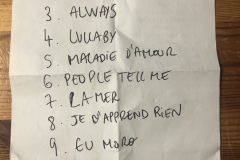 3. ALWAYS
4. LULLABY
5. MALADIE D'AMOUR
6. PEOPLE TELL ME
7. LA MER
8. JE D'APPREND RIEN
9. EU MORO